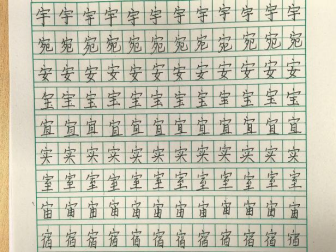 宇宇宇宇宇宇宇宇宇宇宇宇
宛宛宛宛宛宛宛宛宛宛宛宛
安安安安安安安安安安安安
宝宝宝宝宝宝宝宝宝宝宝宝
宜宜宜宜宜宜宜宜宜宜宜宜
实实实实实实实实实实实实
室室室室室室室室室室室室
宙宙宙宙宙宙宙宙宙宙宙宙
宿宿宿宿宿宿宿宿宿宿宿宿